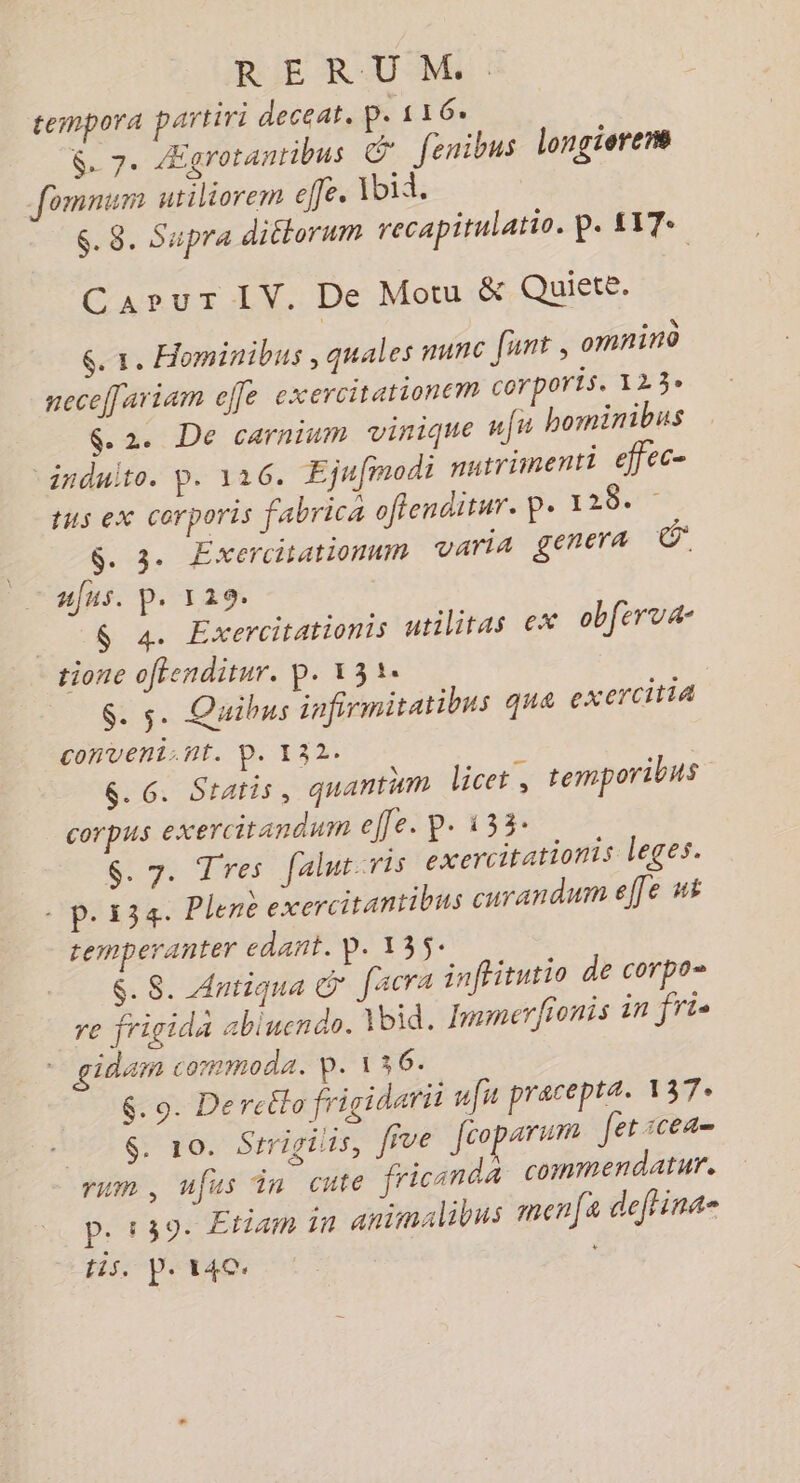 RERUM.
tempora partiri deceat. p. 116.
§. 7. Ægrotantibus & ſenibus longiorem
ſomnum utiliorem eſſe. Ibid.
§. 8. Supra dictorum recapitulatio. p. 117.
CAPUT IV. De Motu & Quiete.
§. 1. Hominibus, quales nunc ſunt, omninò
neceſſariam eſſe exercitationem corporis. 123.
§. 2. De carnium vinique uſu hominibus
indulto. p. 126. Ejuſmodi nutrimenti effec-
tus ex corporis fabricâ oſtenditur. p. 128.
§. 3. Exercitationum varia genera &
uſus. p. 129.
§ 4. Exercitationis utilitas ex obſerva-
tione oſtenditur. p. 131.
§. 5. Quibus infirmitatibus quæ exercitia
conveniant. p. 132.
§. 6. Statis, quantùm licet, temporibus
corpus exercitandum eſſe. p. 133.
§. 7. Tres ſalutaris exercitationis leges.
p. 134. Plenè exercitantibus curandum eſſe ut
temperanter edant. p. 135.
§. 8. Antiqua & ſacra inſtitutio de corpo-
re frigidâ abluendo. Ibid. Immerſionis in fri-
gidam commoda. p. 136.
§. 9. De recto frigidarii uſu præcepta. 137.
§. 10. Strigilis, ſive ſcoparum ſetacea-
rum, uſus in cute fricandâ commendatur.
p. 139. Etiam in animalibus menſæ deſtina-
tis. p. 140.